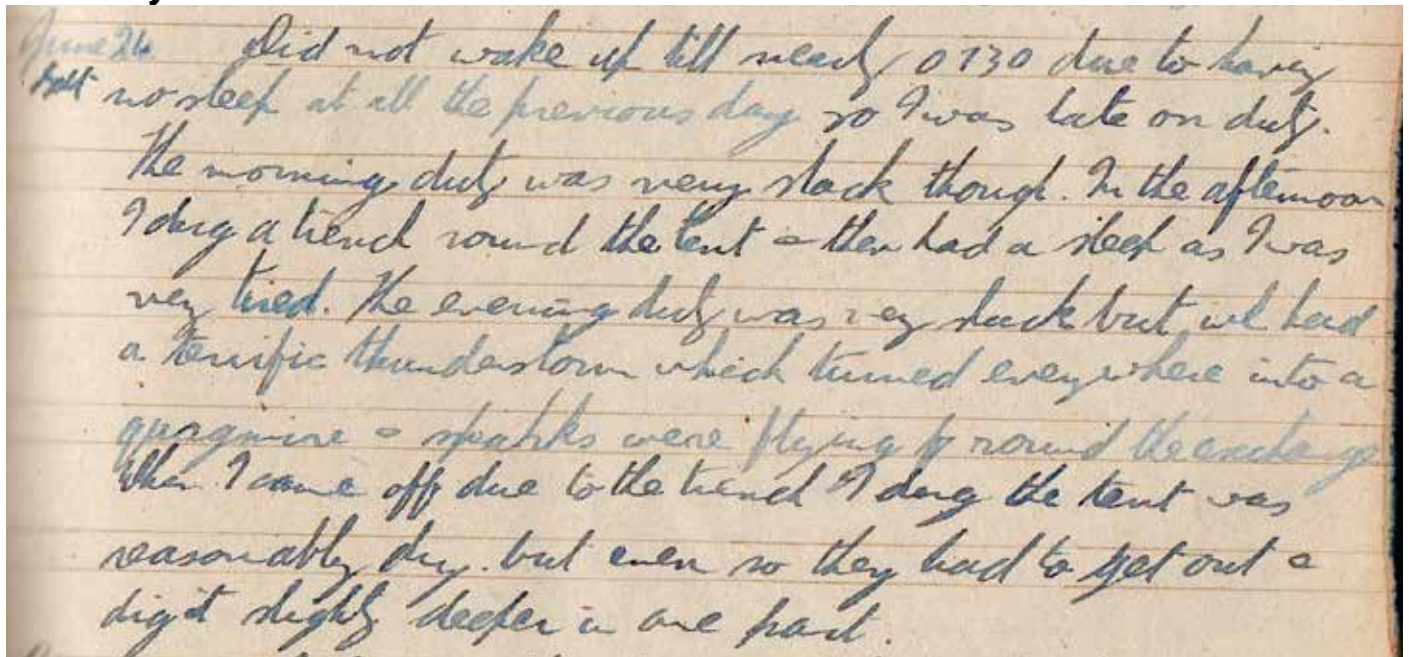 June 24 Did not wake up till nearly 0730 due to having
no sleep at all the previous day so I was late on duty.
The morning duty was very slack though. In the afternoon
I dug a trench round the tent & then had a sleep as I was
very tired. The evening duty was very slack but we had
a terrific thunderstorm which turned everywhere into a
quagmire & sparks were flying round the exchange
When I came off due to the trench I dug the tent was
reasonably dry. but even so they had to get out &
dig it slightly deeper in one part.